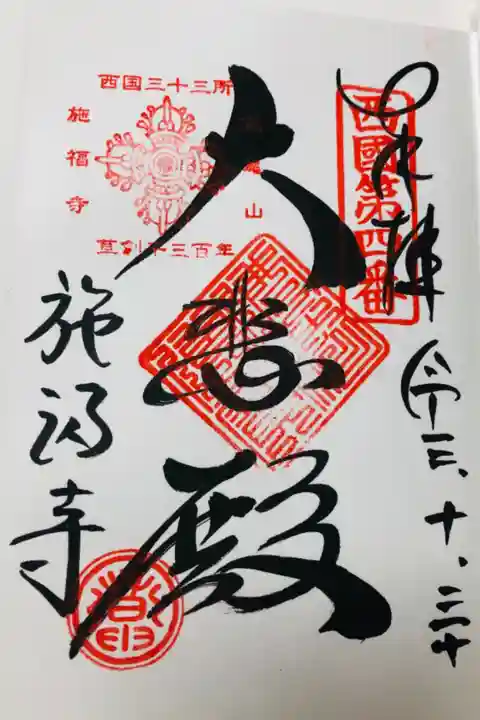 奉拝
令三、十、二十
西國第四番
大悲殿
西国三十三所
山
草創千三百年
施福寺
施福寺